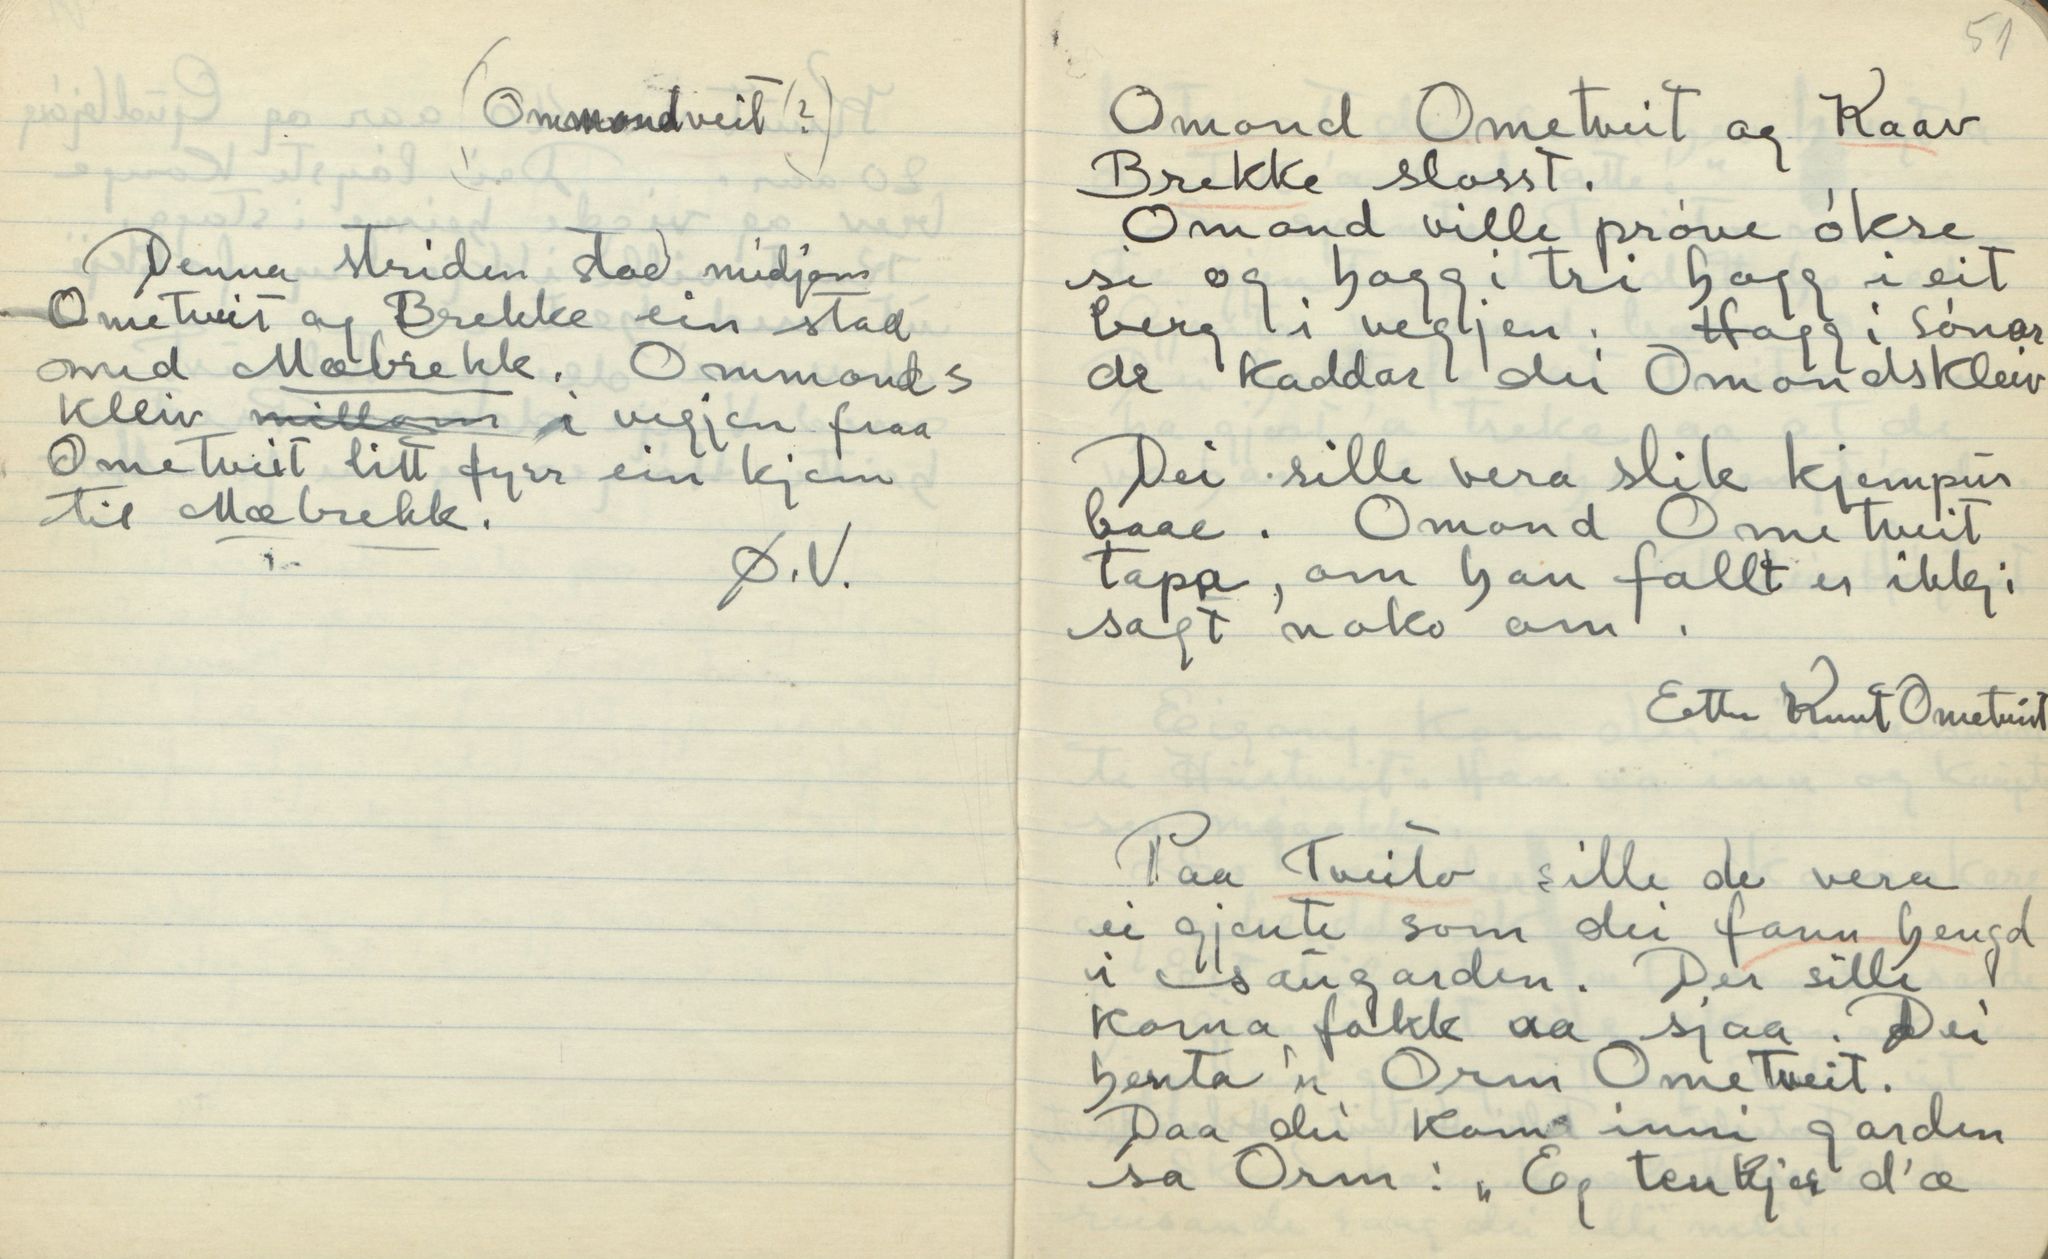 (Ommondveit?)
Denna striden stod midjom
Ometveit og Brekke ein stad
med Mæbrekk. Ommonds
kleiv millom i vegjen fraa
Ometveit litt fyrr ein kjem
til Mæbrekk.
Ø.V.
51
Omond Ometveit og Kaav
Brekke slosst.
Omond ville próve ókse
si og hoggi tri hogg i eit
berg i vegjen. Hoggi sónar
de kaddar dei Omondskleiv
Dei sille vera slik kjempur
baae. Omond Ometveit
tapa, om han fallt er ikkji
sagt noko om.
Ette Knut Ometveit
Paa Tveito sille de vera
ei gjente som dei fann hengd
i saugarden. Der sille
koma fókk aa sjaa. Dei
henta 'n Orm Ometveit.
Daa dei kom inni garden
sa Orm: „Eg tenkjer d'æ